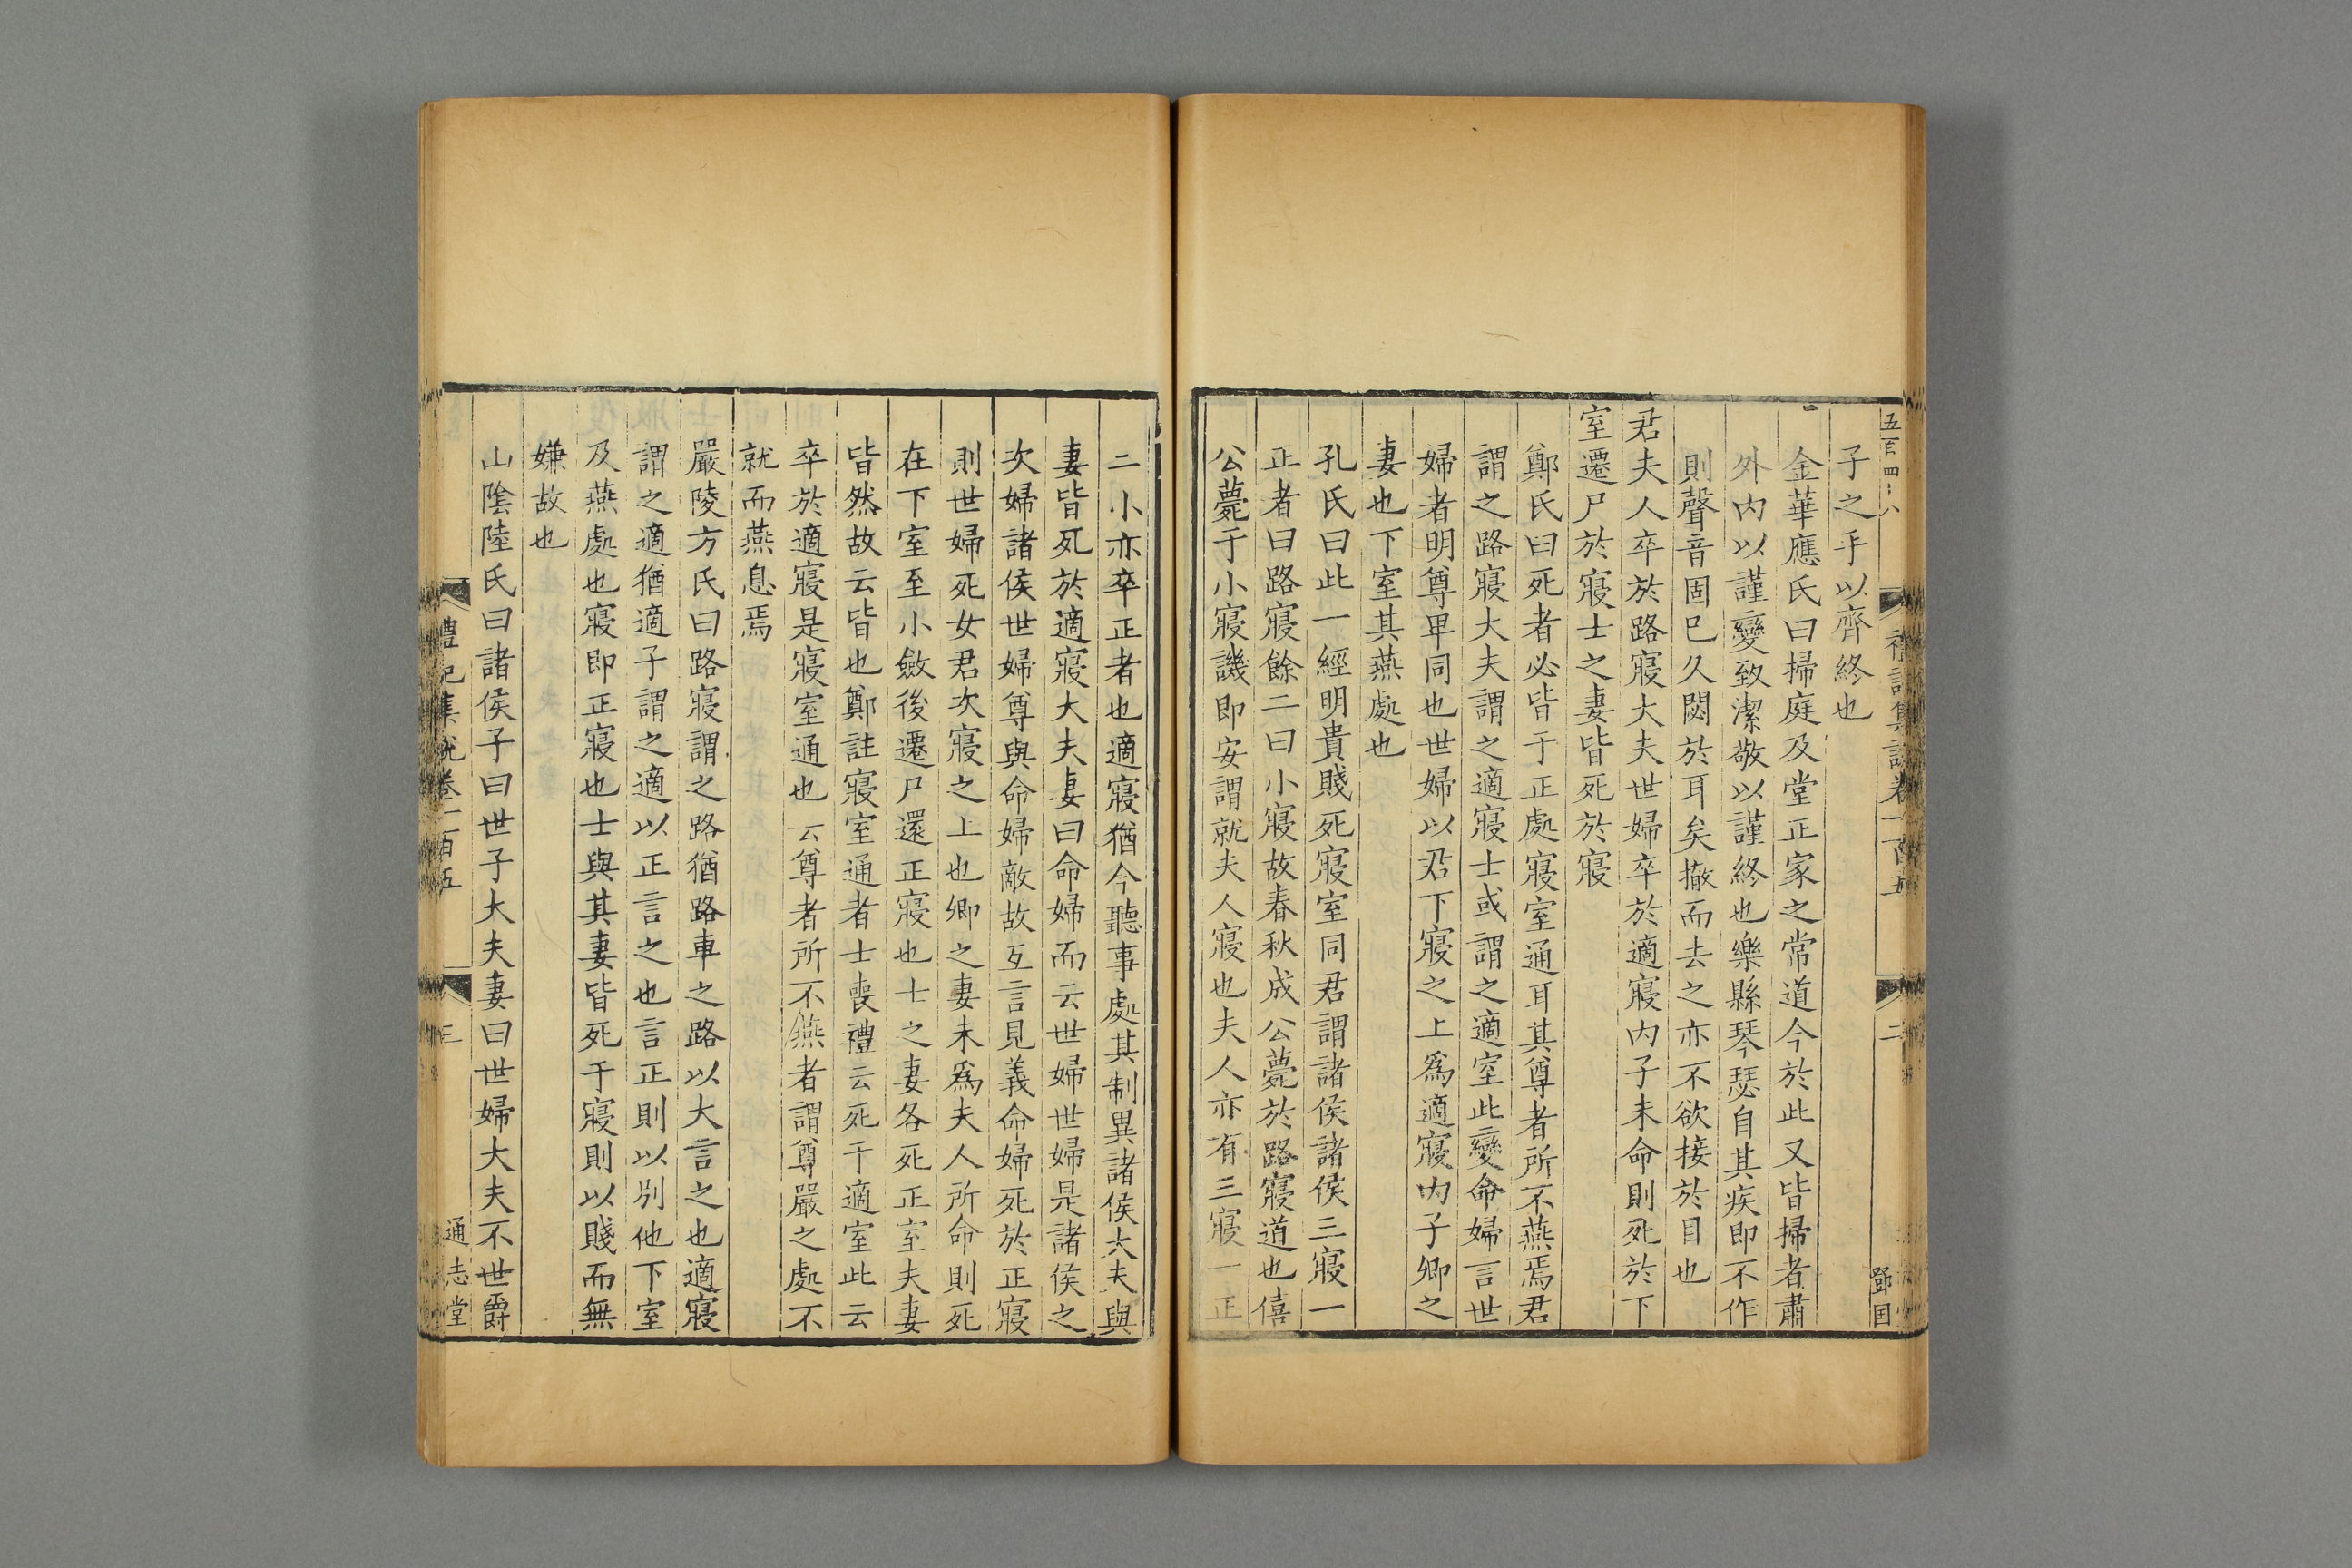 子之手以齊終也
金華應氏曰掃庭及堂正家之常道今於此又皆掃者肅
外內以謹變致潔敬以謹終也樂縣琴瑟自其疾即不作
則聲音固已久閟於耳矣撤而去之亦不欲接於目也
君夫人卒於路寢大夫世婦卒於適寢內子未命則死於下
室遷尸於寢士之妻皆死於寢
鄭氏曰死者必皆于正處寢室通耳其尊者所不燕焉君
謂之路寢大夫謂之適寢士或謂之適室此變命婦言世
婦者明尊卑同也世婦以君下寢之上爲適寢內子卿之
妻也下室其燕處也
孔氏曰此一經明貴賤死寢室同君謂諸侯諸侯三寢一
正者曰路寢餘二曰小寢故春秋成公薨於路寢道也僖
公薨于小寢譏即安謂就夫人寢也夫人亦有三寢一正
二小亦卒正者也適寢猶今聽事處其制異諸侯大夫與
妻皆死於適寢大夫妻曰命婦而云世婦世婦是諸侯之
次婦諸侯世婦尊與命婦敵故互言見義命婦死於正寢
則世婦死女君次寢之上也卿之妻未爲夫人所命則死
在下室至小斂後遷尸還正寢也士之妻各死正室夫妻
皆然故云皆也鄭註寢室通者士喪禮云死于適室此云
卒於適寢是寢室通也云尊者所不燕者謂尊嚴之處不
就而燕息焉
嚴陵方氏曰路寢謂之路猶路車之路以大言之也適寢
謂之適猶適子謂之適以正言之也言正則以別他下室
及燕處也寢即正寢也士與其妻皆死于寢則以賤而無
嫌故也
山陰陸氏曰諸侯子曰世子大夫妻曰世婦大夫不世爵
禮記集說卷一百五
二
鄧国
禮記集說卷一百五
三
通志堂